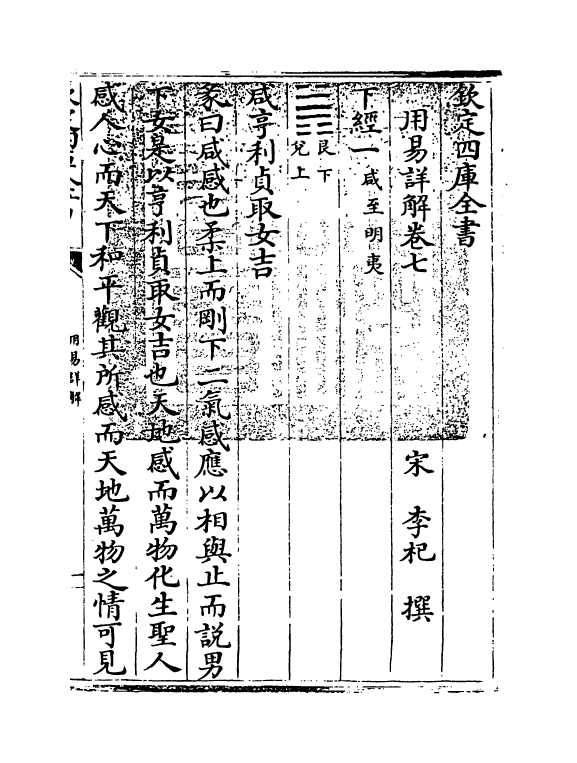 欽定四庫全書
用易詳解卷七
宋 李杞 撰
下經一 咸至明夷
䷞ 艮下 兌上
咸亨利貞取女吉
彖曰咸感也柔上而剛下二氣感應以相與止而說男
下女是以亨利貞取女吉也天地感而萬物化生聖人
感人心而天下和平觀其所感而天地萬物之情可見
用易詳解